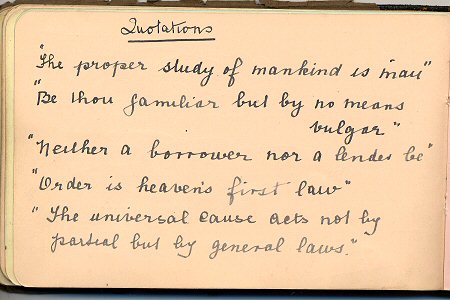 Quotations
"The proper study of mankind is man"
"Be thou familiar but by no means
vulgar"
"Neither a borrower nor a lender be"
"Order is heaven's first law"
"The universal cause acts not by
partial but by general laws."